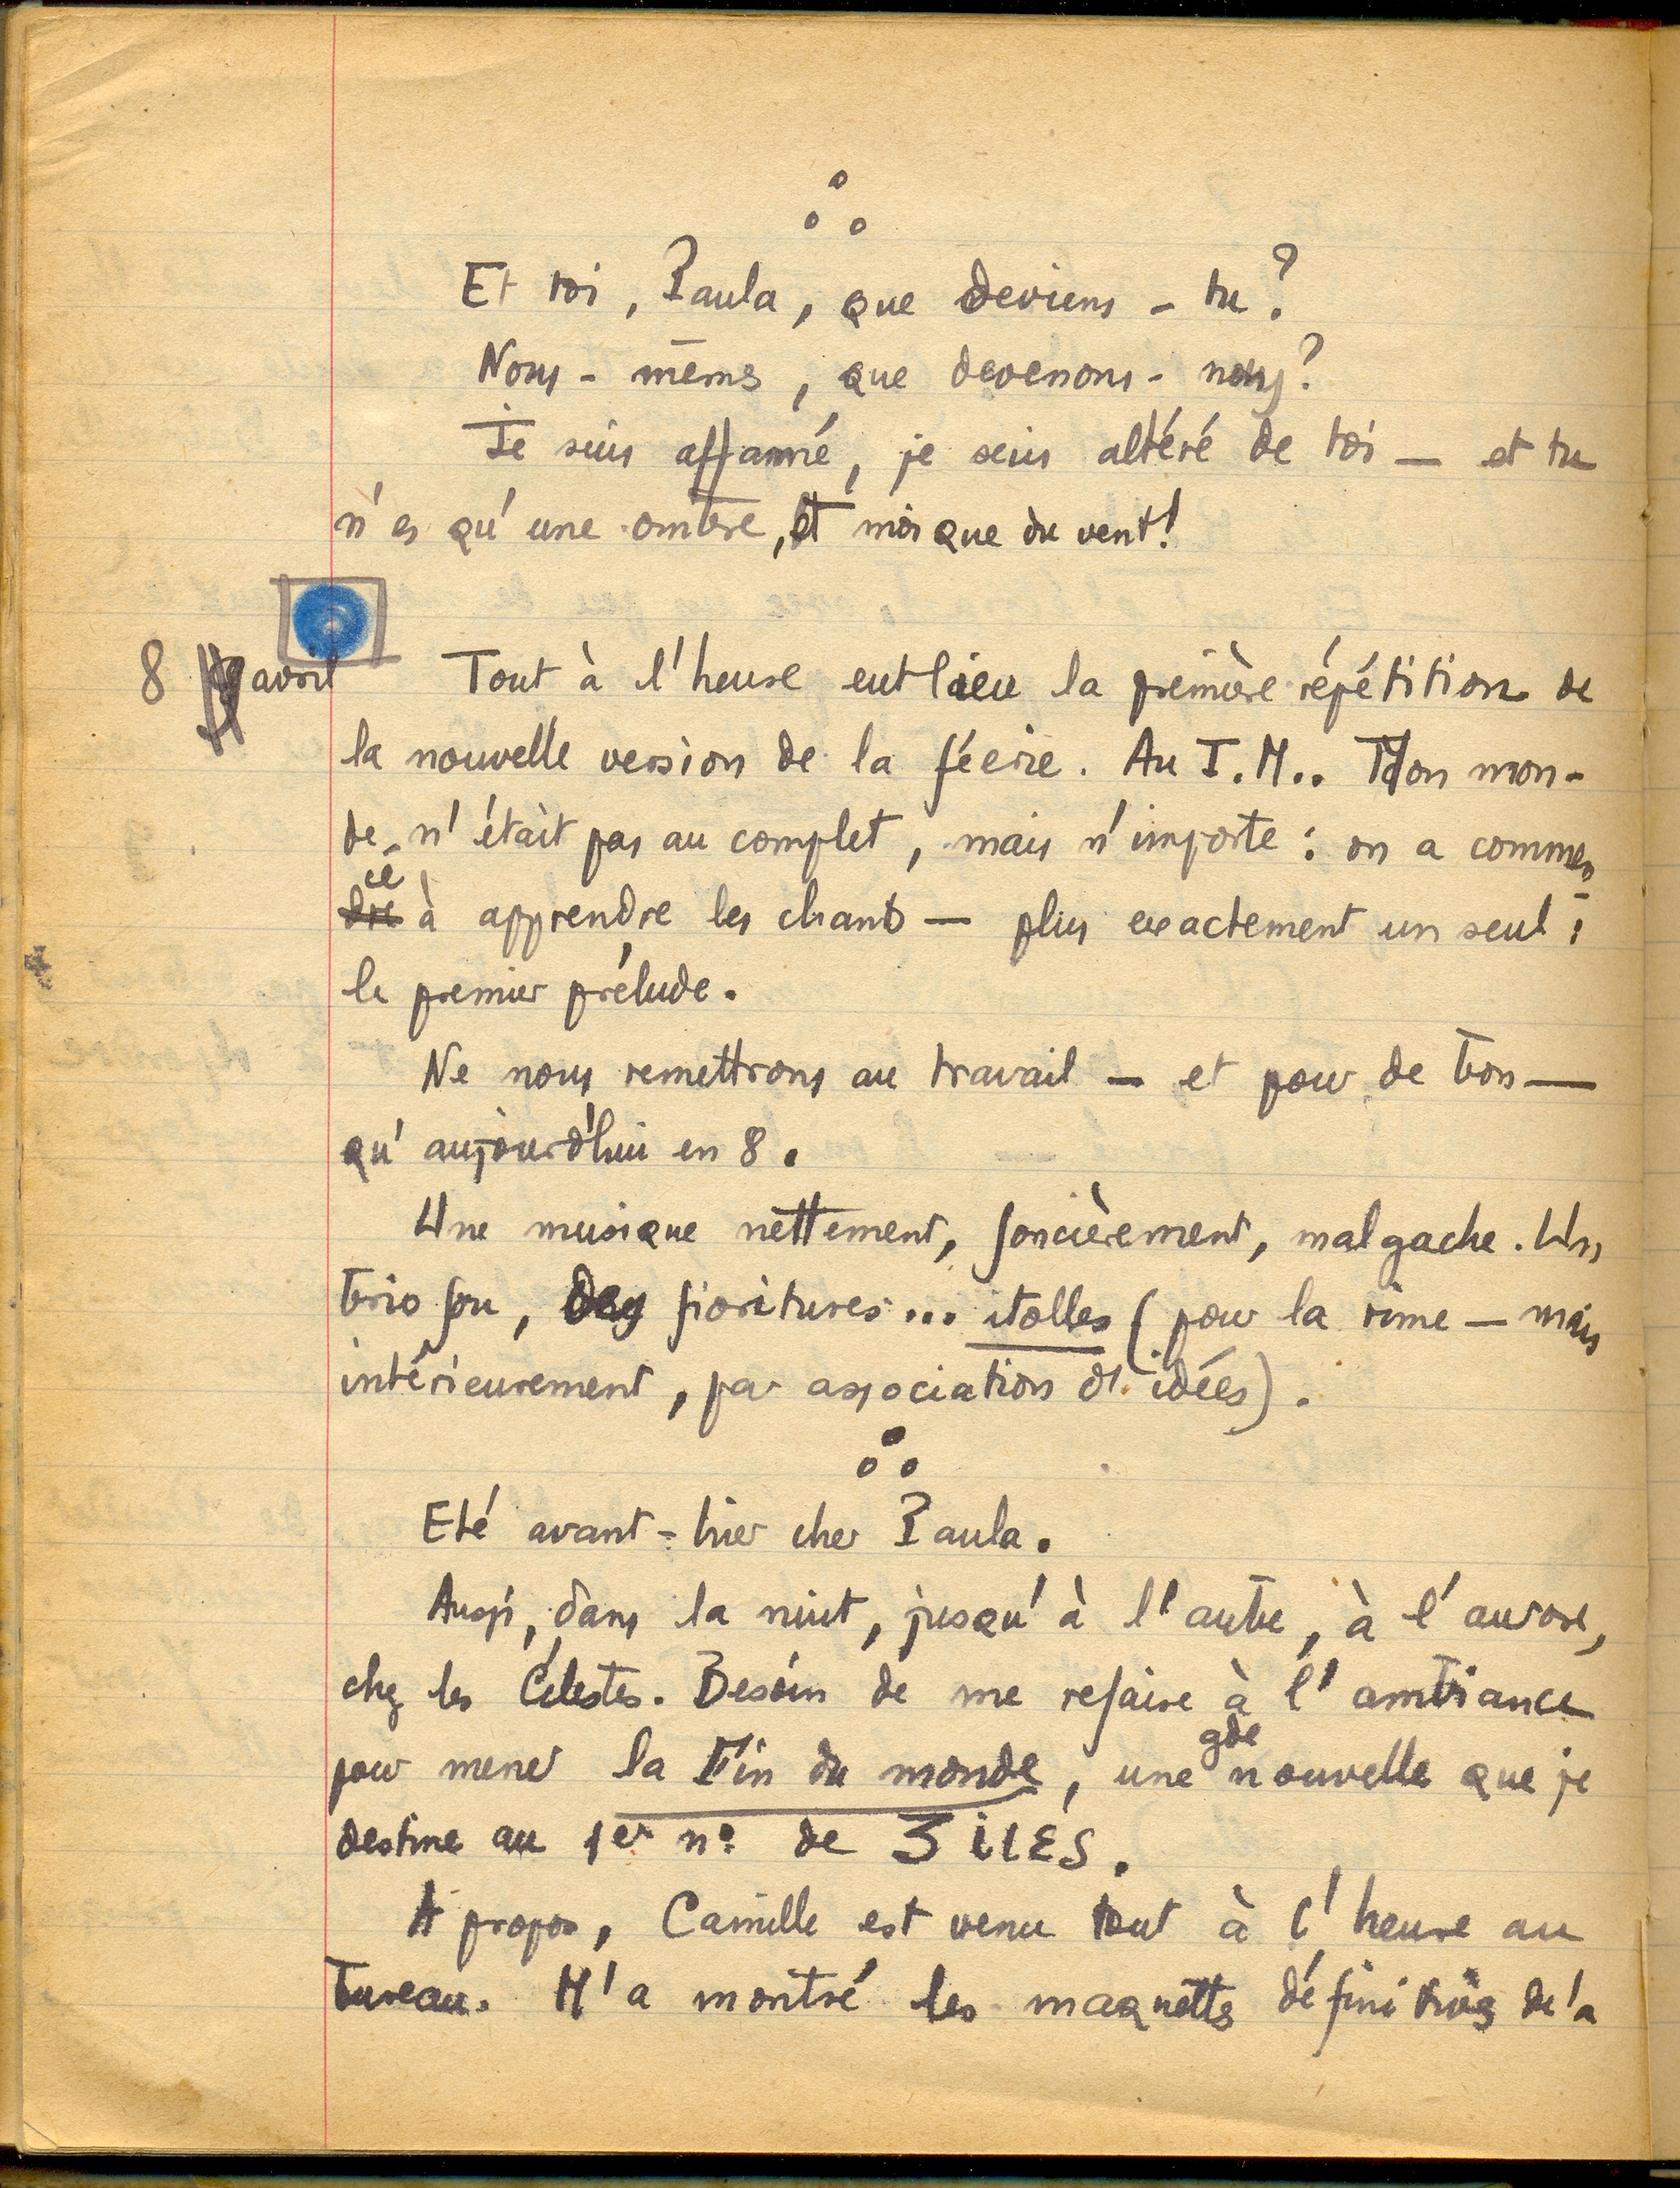 Et toi, Paula, que deviens-tu?
Nous-mêmes, que devenons-nous?
Je suis affamé, je suis altéré de toi — et tu
n'es qu'une ombre, et moi que du vent!
8 avril
Tout à l'heure eut lieu la première répétition de
la nouvelle version de la féerie. Au T.M.. Mon mon-
de n'était pas au complet, mais n'importe : on a commen
cé à apprendre les chants — plus exactement un seul :
le premier prélude.
Ne nous remettrons au travail — et pour de bon —
qu'aujourd'hui en 8.
Une musique nettement, foncièrement, malgache. Un
brio fou, des fioritures... itolles (pour la rime — mais
intérieurement, par association d'idées).
Eté avant-hier chez Paula.
Aussi, dans la nuit, jusqu'à l'aube, à l'aurore,
chez les Célestes. Besoin de me refaire à l'ambiance
pour mener la Fin du monde, une gde nouvelle que je
destine au 1er no de 3 ilES.
A propos, Camille est venu tout à l'heure au
bureau. M'a montré les maquettes définitives de la